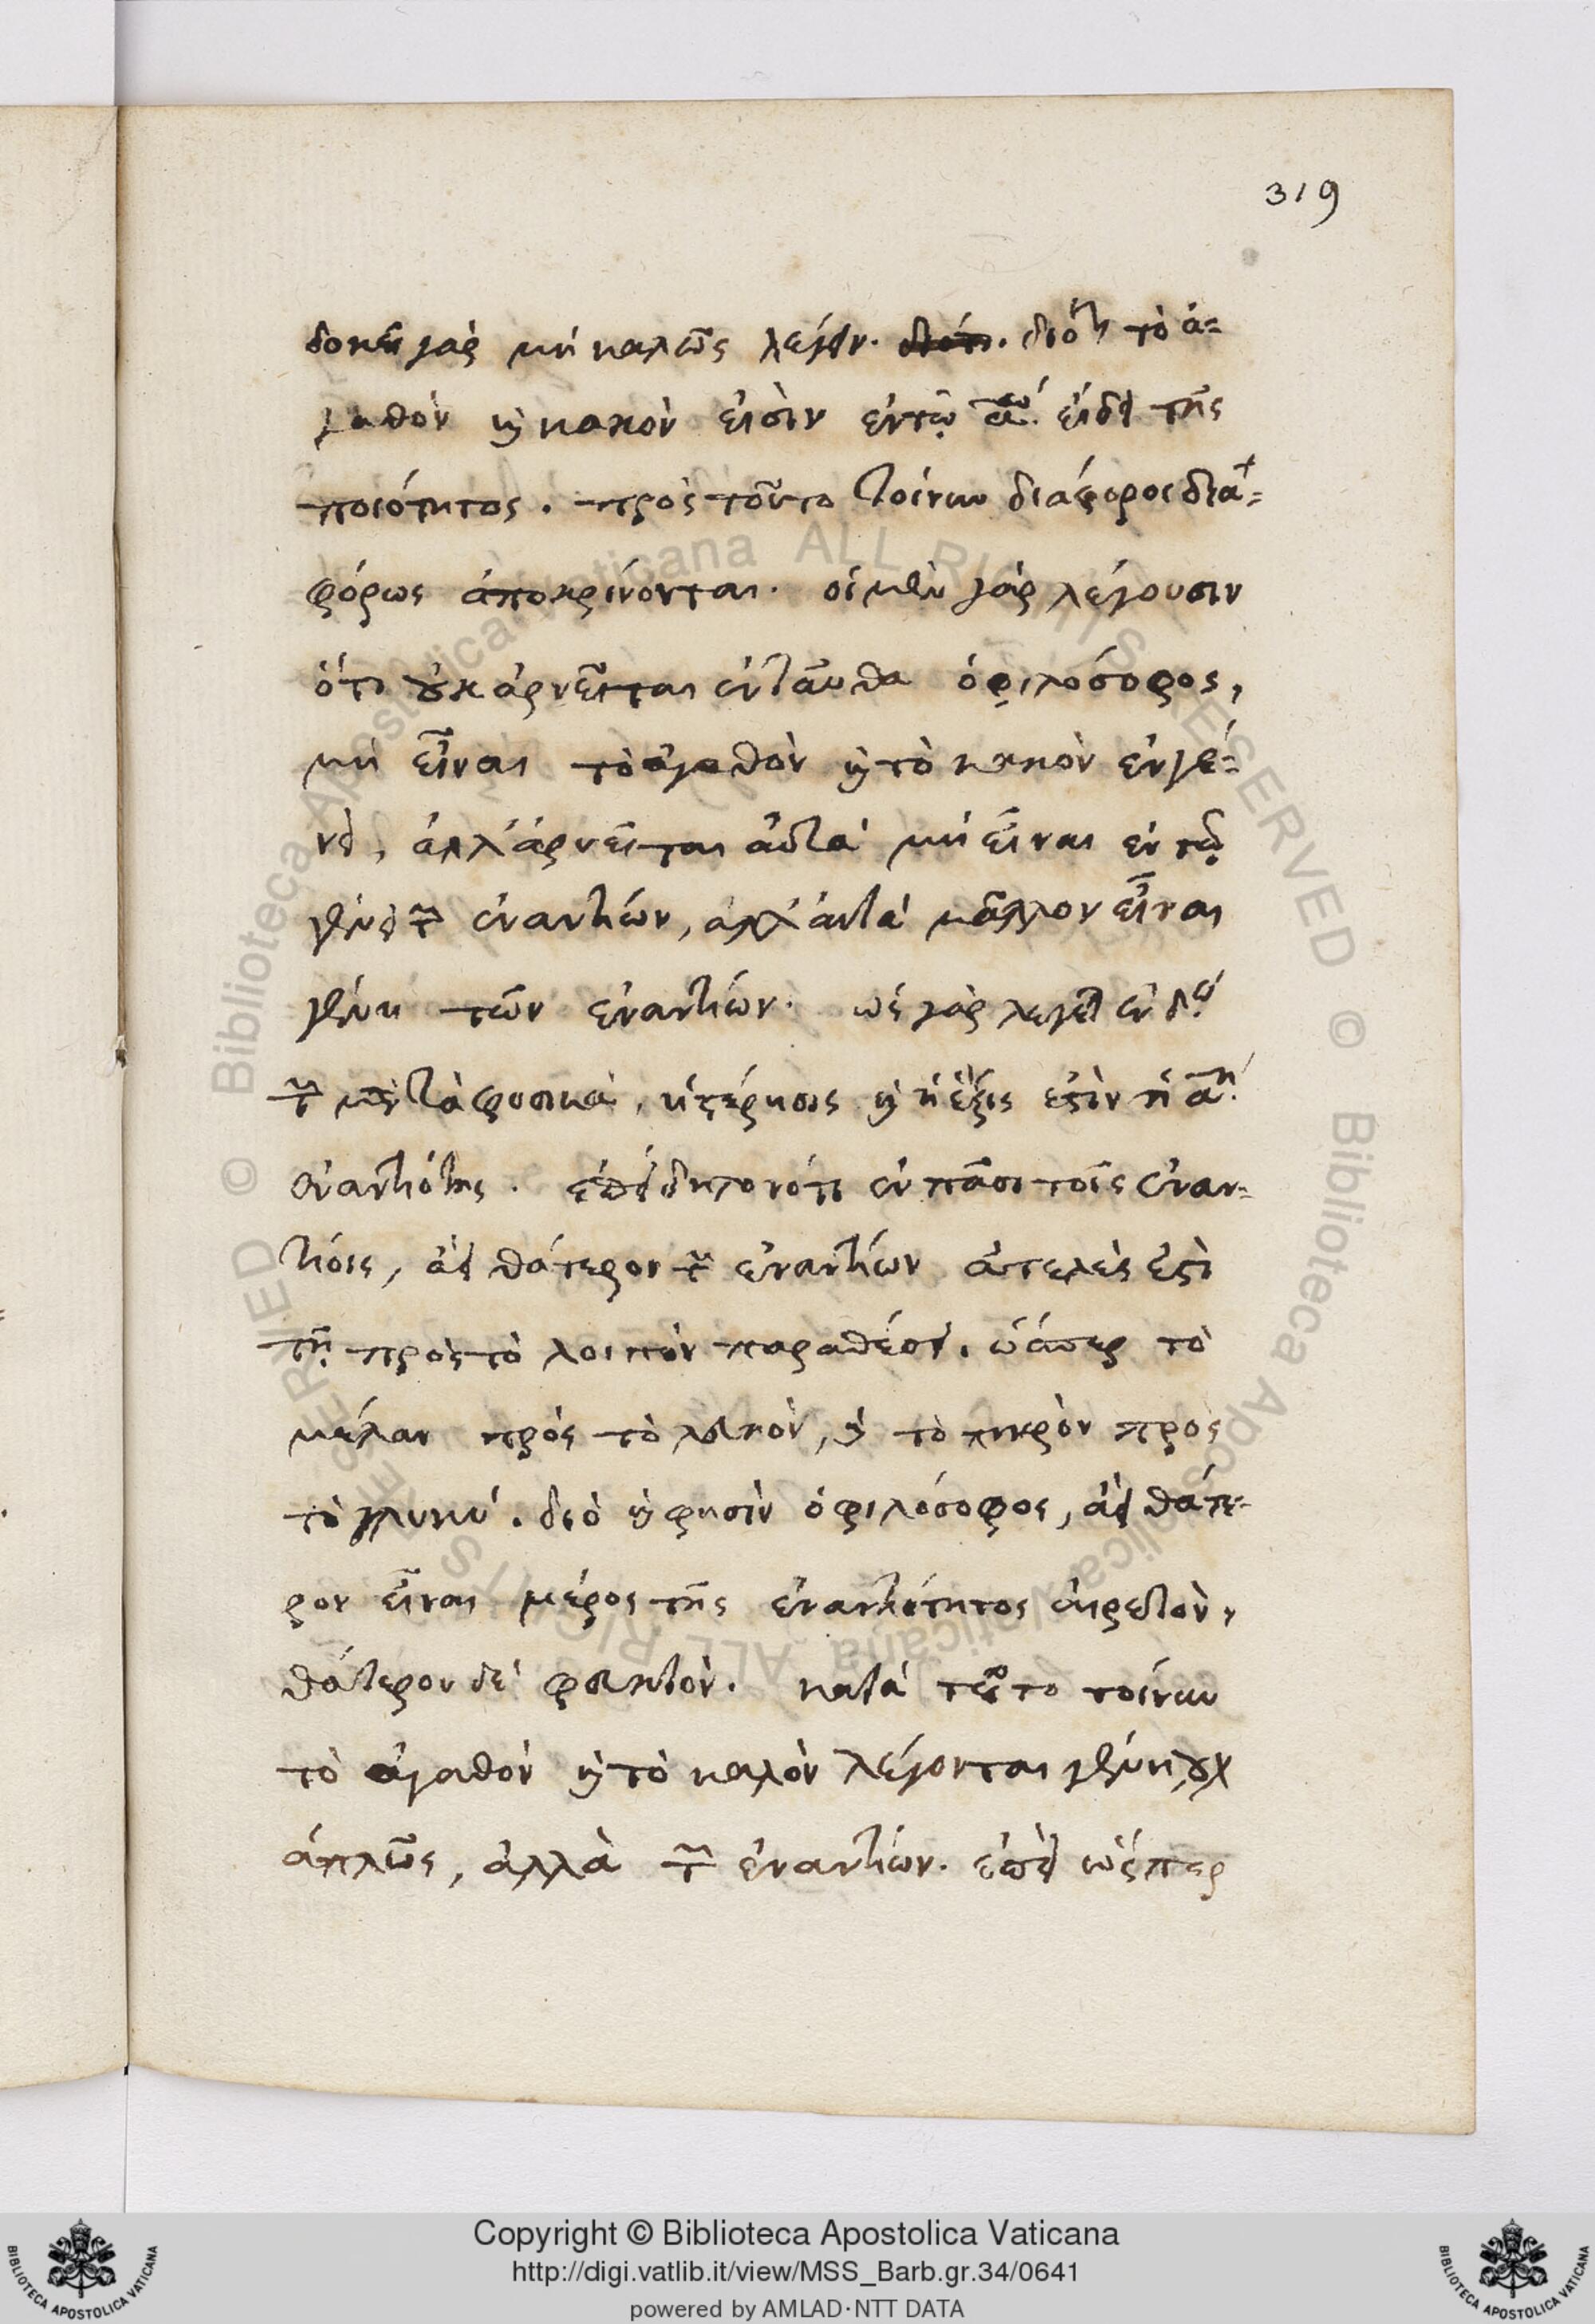 319
δοκεῖ γὰρ μὴ καλῶς λέγειν. διότι. διότι τὸ ἀ-
γαθὸν καὶ κακὸν εἰσὶν ἐν τῷ αῳ. εἴδει τῆς
ποιότητος. πρὸς τοῦτο τοίνυν διάφοροι δια-
φόρως ἀποκρίνονται. οἱ μὲν γὰρ λέγουσιν
ὅτι οὐκ ἀρνεῖται ἐνταῦθα ὁ φιλόσοφος,
μὴ εἶναι τὸ ἀγαθὸν καὶ τὸ κακὸν ἐν γέ-
νει, ἀλλ' ἀρνεῖται αὐτὰ μὴ εἶναι ἐν τῷ
γένει τῶν ἐναντίων, ἀλλ' αὐτὰ μᾶλλον εἶναι
γένη τῶν ἐναντίων. ὡς γὰρ λέγει ἐν δῳ
τῶν μετὰ φυσικὰ, ἡ στέρησις καὶ ἡ ἕξις ἐστὶν ἡ αη.
ἐναντιότης. ἐπεὶ δηλονότι ἐν πᾶσι τοῖς ἐναν-
τίοις, ἀεὶ θάτερον τῶν ἐναντίων ἀτελὲς ἐστὶ
τῇ πρὸς τὸ λοιπὸν παραθέσει. ὥσπερ τὸ
μέλαν πρὸς τὸ λευκὸν, καὶ τὸ πικρὸν πρὸς
τὸ γλυκύ. διὸ καὶ φησὶν ὁ φιλόσοφος, ἀεὶ θάτε-
ρον εἶναι μέρος τῆς ἐναντιότητος αἱρετὸν,
θάτερον δὲ φευκτὸν. κατὰ τοῦτο τοίνυν
τὸ ἀγαθὸν καὶ τὸ καλὸν λέγονται γένη, οὐχ
ἁπλῶς, ἀλλὰ τῶν ἐναντίων. ἐπεὶ ὥσπερ
Copyright © Biblioteca Apostolica Vaticana
http://digi.vatlib.it/view/MSS_Barb.gr.34/0641
powered by AMLAD·NTT DATA